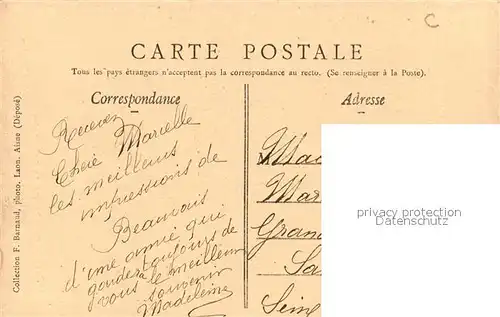 C
CARTE POSTALE
Tous les pays étrangers n'acceptent pas la correspondance au recto. (Se renseigner à la Poste).
Correspondance
Adresse
Recevez
Chère Marcelle
les meilleurs
impressions de
Beauvais
d'une amie qui
gardera toujours de
vous le meilleur
souvenir
Madeleine
Mar
Gran
Sa
Sein
privacy protection
Datenschutz
Collection F. Barnaud, photo. Laon. Aisne (Déposé)